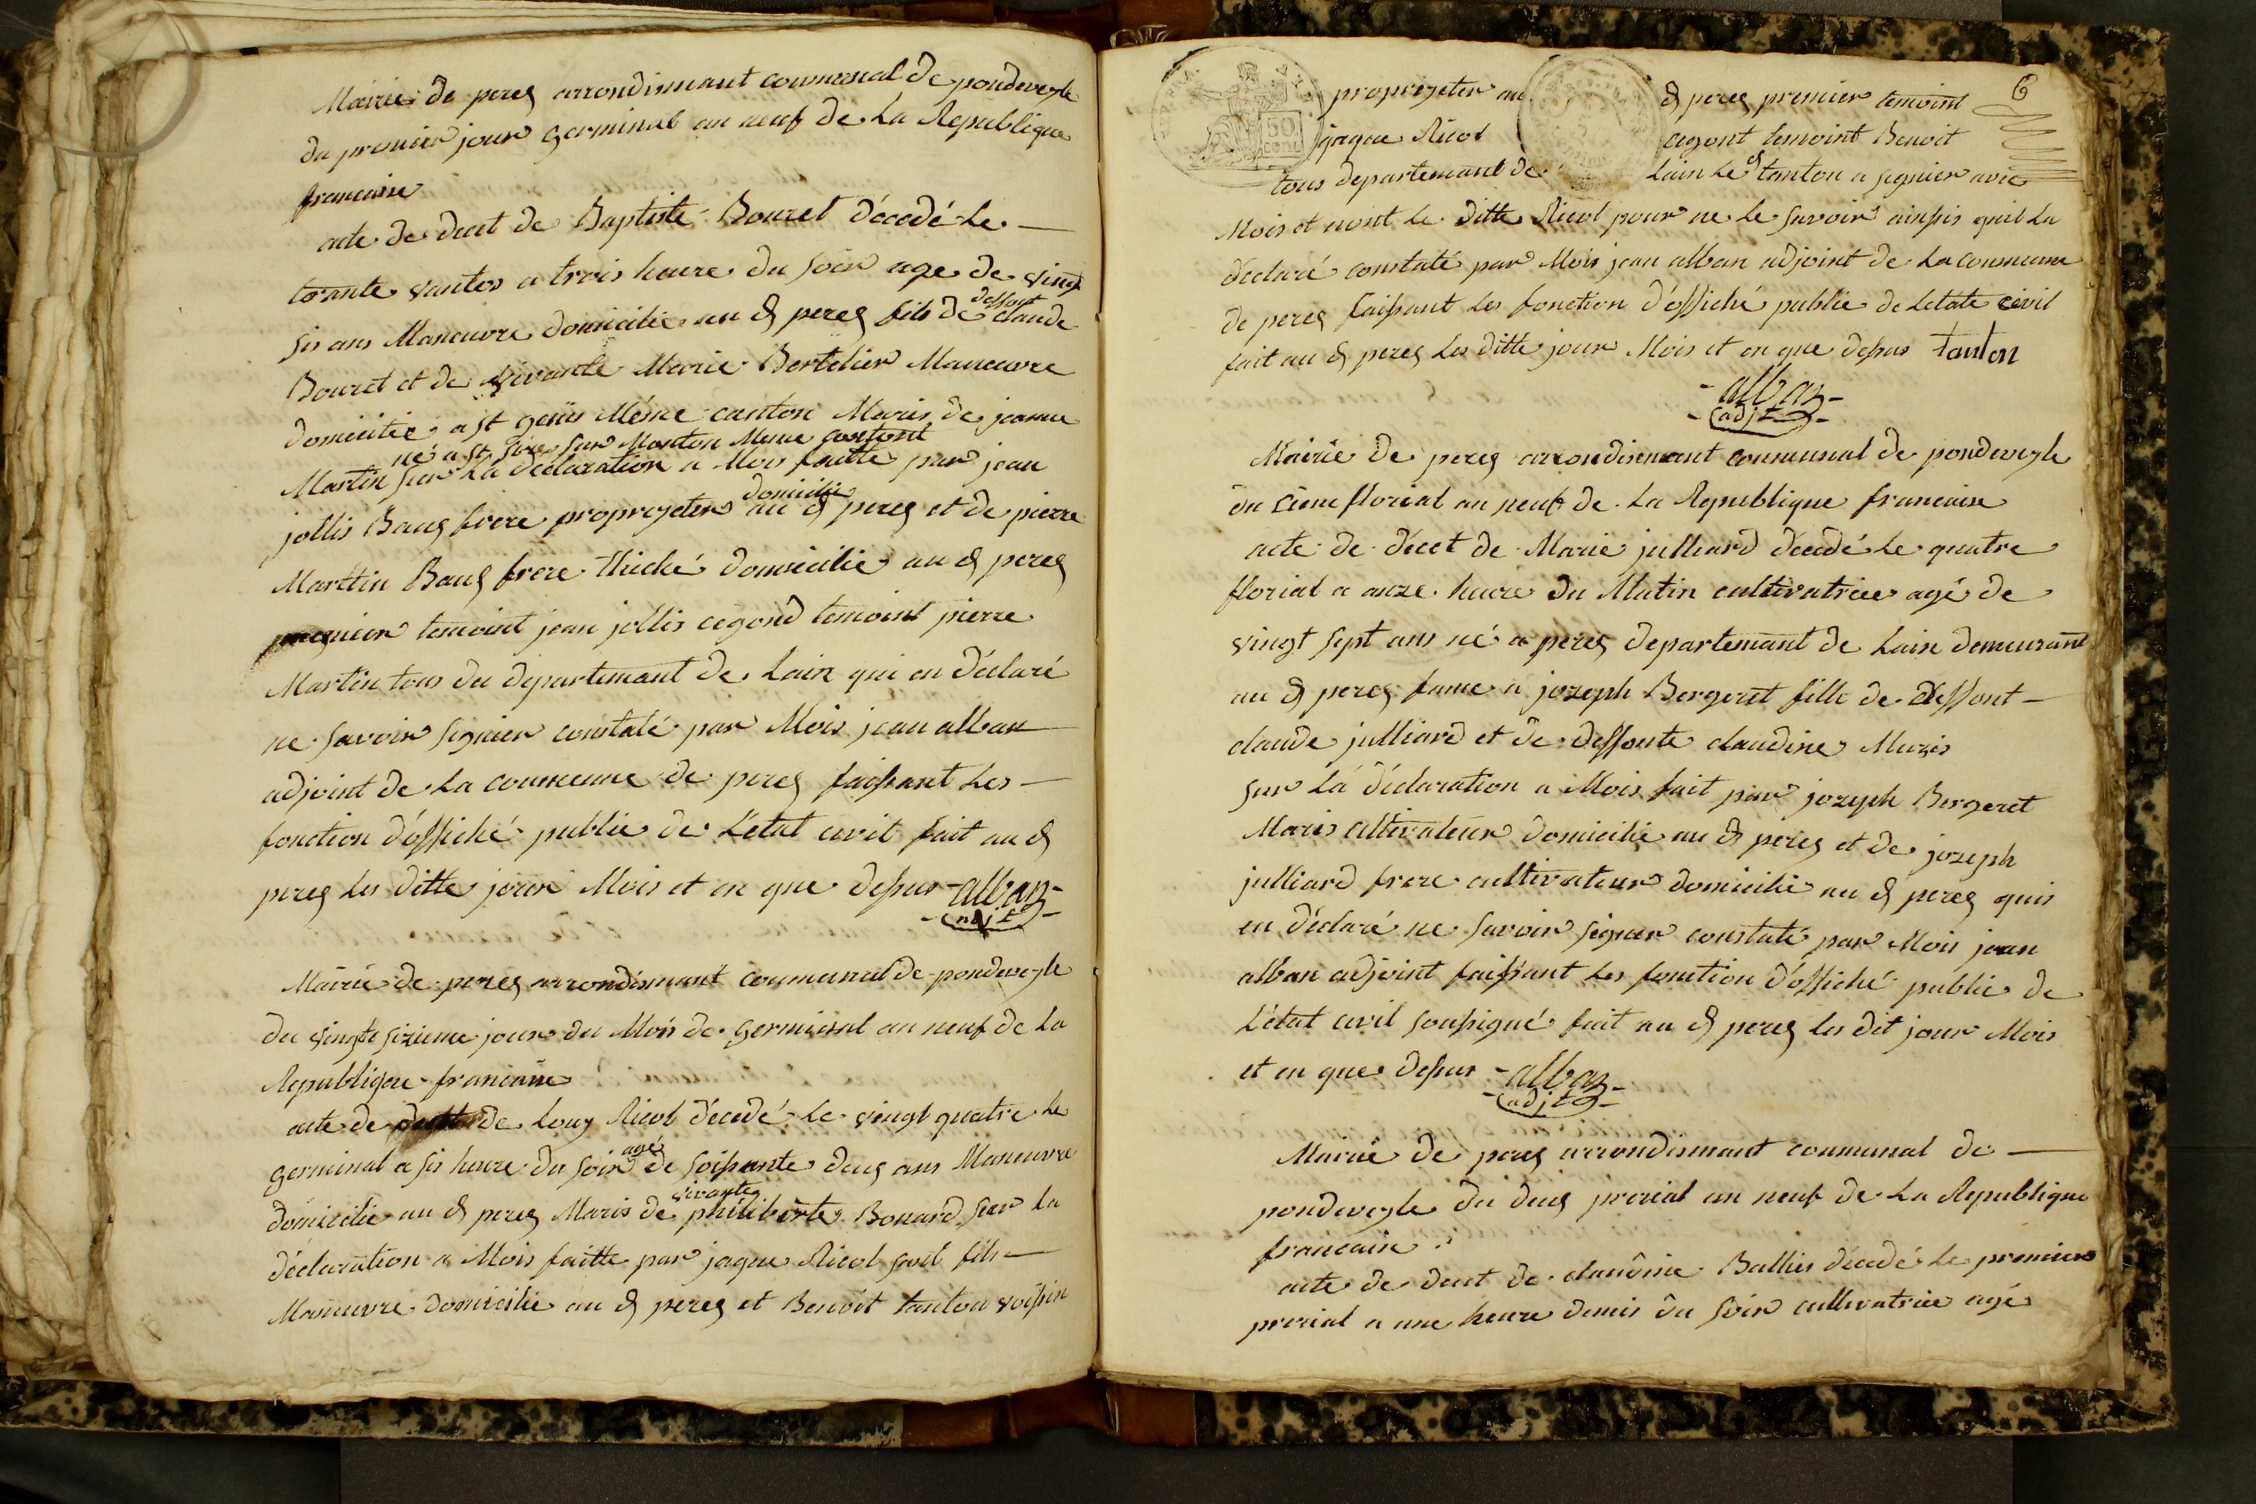 Mairie de perex arrondismant coumunal de pondeveyle
du premier jour germinal an neuf de La Republique
francaise
acte de decet de Baptiste Bouret décedé Le
torante vantos a trois heure du soir age de vingt
sis ans Maneuvre domicilie au d perex fils de deffont claude
Bouret et de vivante Marie Bertelier Maneuvre
domicilié a st genis Méme canton Maris de jeanne
né a st Sire sur Monton Meme contont
Martin sur La déclaration a Mois faitte par jean
jollis Baux frere propriyeter domicilie au d perex et de pierre
Marttin Baux frere domicilie au d perex
premier temoint jean jollis cegond temoint pierre
Martin tous du departemant de Lain qui on déclaré
ne savoir signier constaté par Mois jean alban
adjoint de La coumeune de perex faissant Les
fonction d'offiché public de L'etat civil fait au d
perex Les ditte jour Mois et en que dessus alban
adjt
Mairie de perex arrondismant coumunal de pondeveyle
du vingte sizieme jour du Mois de germinal an neuf de La
Republique francaise
acte de de Louy Ricol décedé Le vingt quatre Le
germinal a sis heure du soir agé de soissante deux ans Maneuvre
domicilie au d perex Maris de vivante philiberte Bonard sur La
déclaration a Mois faitte par jaque Ricol fils
Maneuvre domicilie au d perex et Benoit tanton voissin
propriyeter au d perex premier temoint 6
jaque Ricol cegont temoint Benoit
50
cent
tous departemant de Lain Le d tanton a signier avec
Mois et nont Le ditte Ricol pour ne Le savoir ainssis quil La
déclaré constaté par Mois jean alban adjoint de La coumeune
de perex faissant Les fonction d'offiché public de Létat civil
fait au d perex Les ditte jour Mois et en que dessus tanton
alban
adjt
Mairie de perex arrondismant coumunal de pondeveyle
du florial an neuf de La Republique francaise
acte de décet de Marie julliard décedé Le quatre
florial a onze heure du Matin cultivatrice agé de
vingt sept ans né a perex departemant de Lain demeurant
au d perex fame a jozeph Bergeret fille de deffont
claude julliard et de deffonte claudine Muzis
sur La déclaration a Mois fait par jozeph Bergeret
Maris cultivateur domicilie au d perex et de jozeph
julliard frere cultivateur domicilie au d perex quis
en déclaré ne savoir signer constaté par Mois jean
alban adjoint faissant Les fonction d'offiché public de
L'état civil soussigné fait au d perex Les dit jour Mois
et en que dessus alban
adjt
Mairie de perex arrondismant coumunal de
pondeveyle du deux prerial an neuf de La Republique
francaise
acte de decet de claudine Ballies décedé Le premier
prerial a une heure demis du soir cultivatrice agé